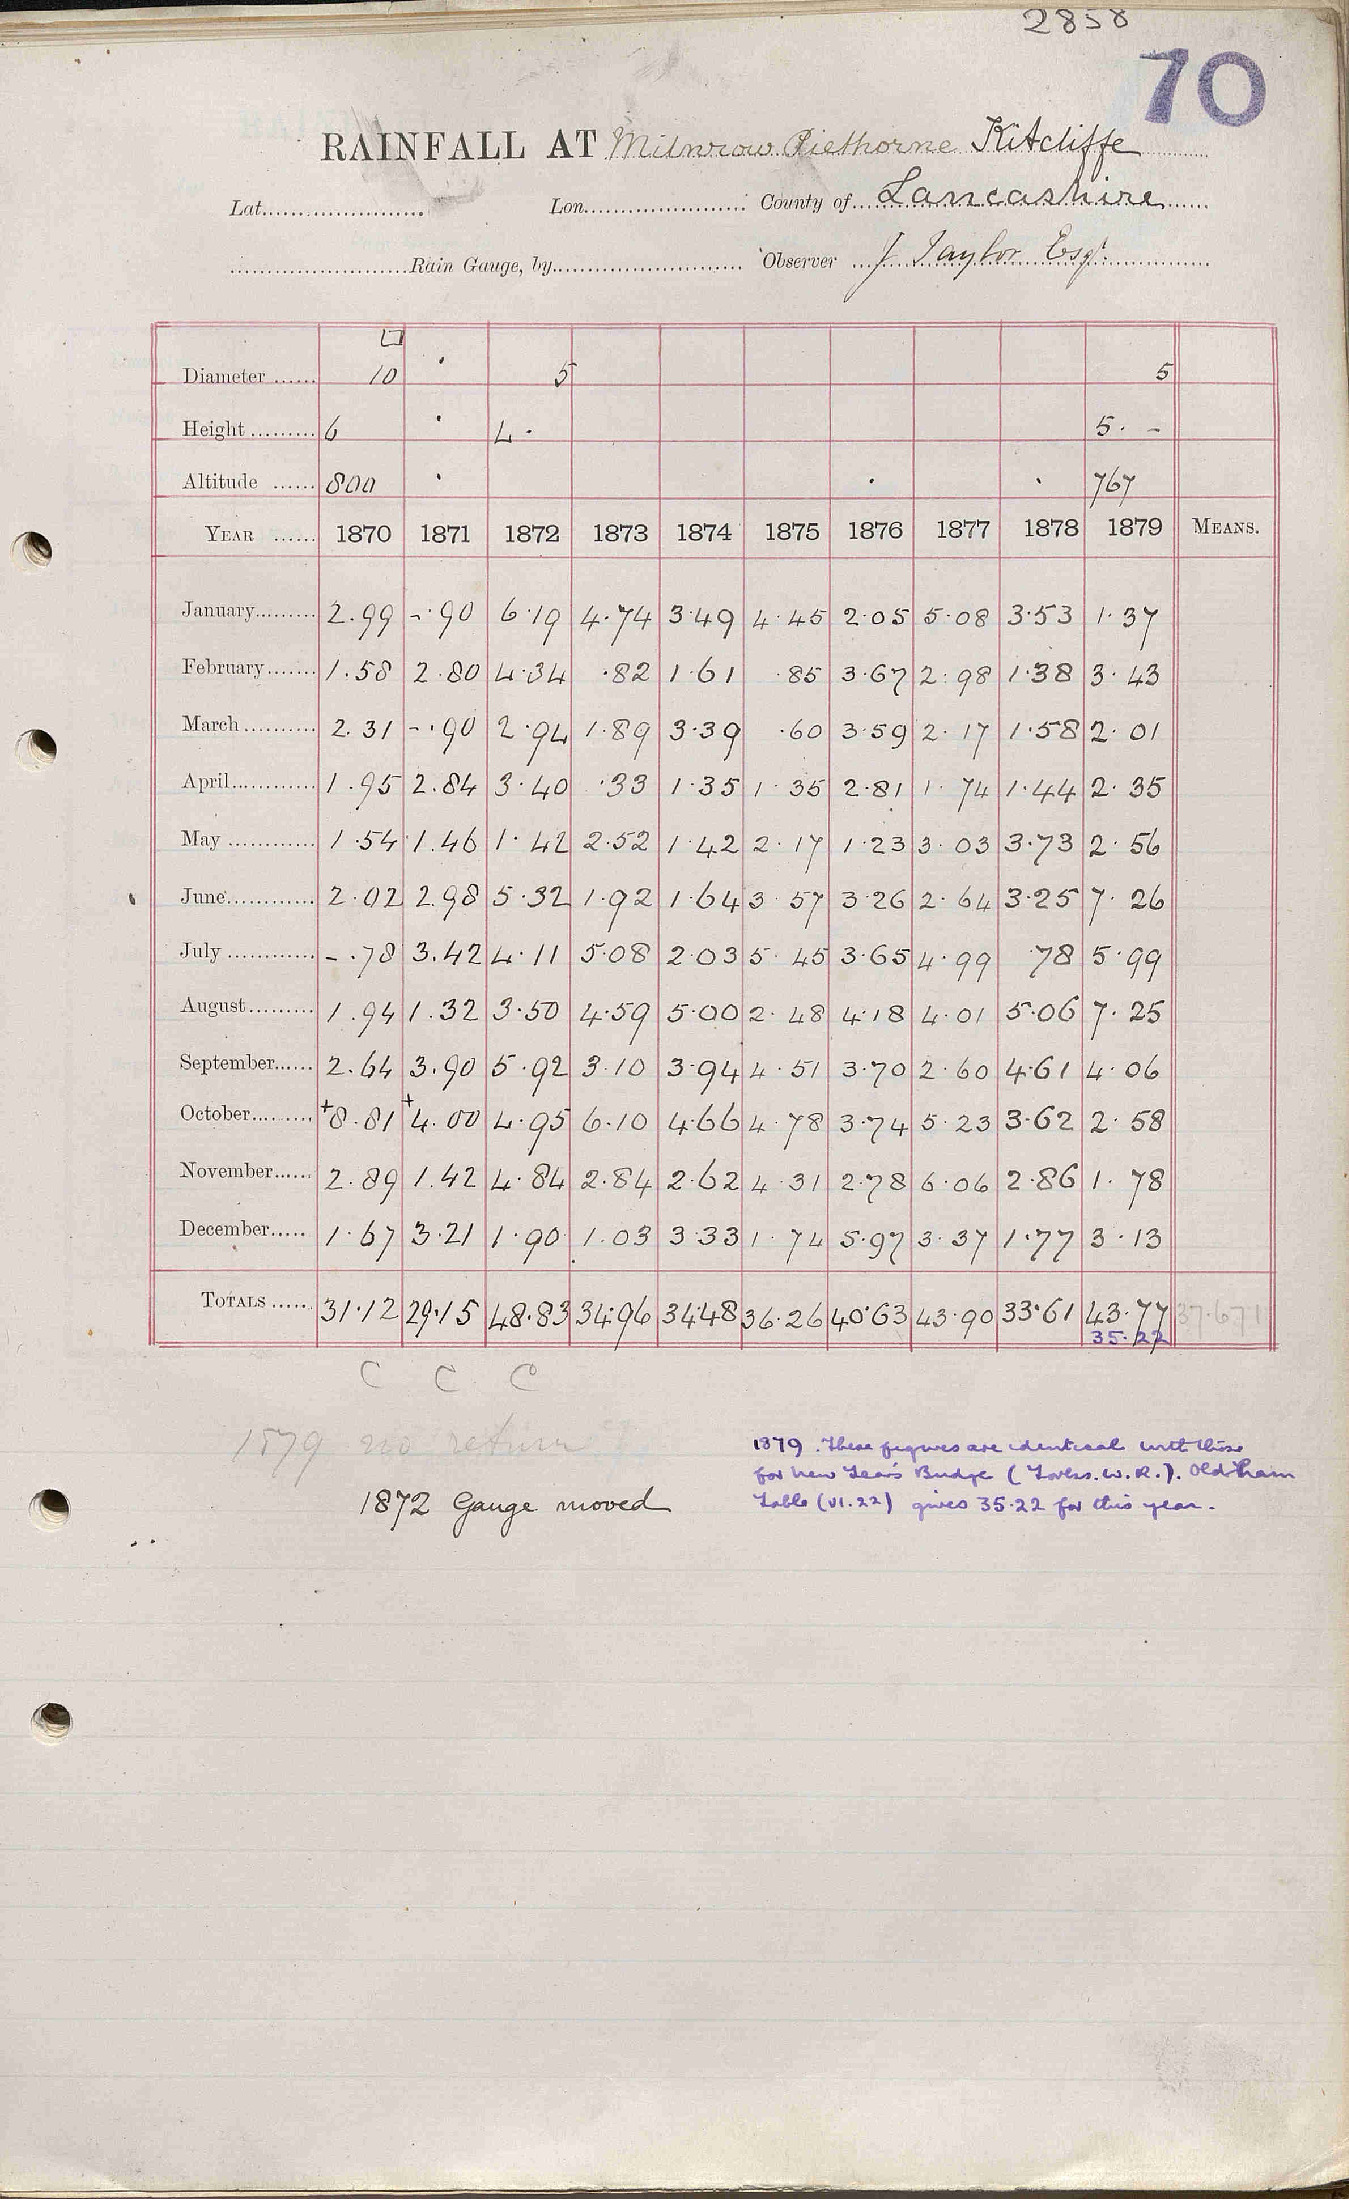 2858
70
RAINFALL AT Milnrow Piethorne Kitcliffe
Lat. Lon. County of Lancashire
Rain Gauge, by Observer J Taylor Esqr.
Diameter 10 5 5
Height 6 4. 5. -
Altitude 800 767
YEAR 1870 1871 1872 1873 1874 1875 1876 1877 1878 1879 MEANS.
January 2.99 -.90 6.19 4.74 3.49 4.45 2.05 5.08 3.53 1.37
February 1.58 2.80 4.34 .82 1.61 .85 3.67 2.98 1.38 3.43
March 2.31 -.90 2.94 1.89 3.39 .60 3.59 2.17 1.58 2.01
April 1.95 2.84 3.40 .33 1.35 1.35 2.81 1.74 1.44 2.35
May 1.54 1.46 1.42 2.52 1.42 2.17 1.23 3.03 3.73 2.56
June 2.02 2.98 5.32 1.92 1.64 3.57 3.26 2.64 3.25 7.26
July -.78 3.42 4.11 5.08 2.03 5.45 3.65 4.99 .78 5.99
August 1.94 1.32 3.50 4.59 5.00 2.48 4.18 4.01 5.06 7.25
September 2.64 3.90 5.92 3.10 3.94 4.51 3.70 2.60 4.61 4.06
October +8.81 +4.00 4.95 6.10 4.66 4.78 3.74 5.23 3.62 2.58
November 2.89 1.42 4.84 2.84 2.62 4.31 2.78 6.06 2.86 1.78
December 1.67 3.21 1.90 1.03 3.33 1.74 5.97 3.37 1.77 3.13
TOTALS 31.12 29.15 48.83 34.96 34.48 36.26 40.63 43.90 33.61 43.77 37.671
35.22
C C C
1879 no return
1872 Gauge moved
1879. These figures are identical with those
for New Years Bridge (Yorks. W.R.). Oldham
Table (VI.22) gives 35.22 for this year.